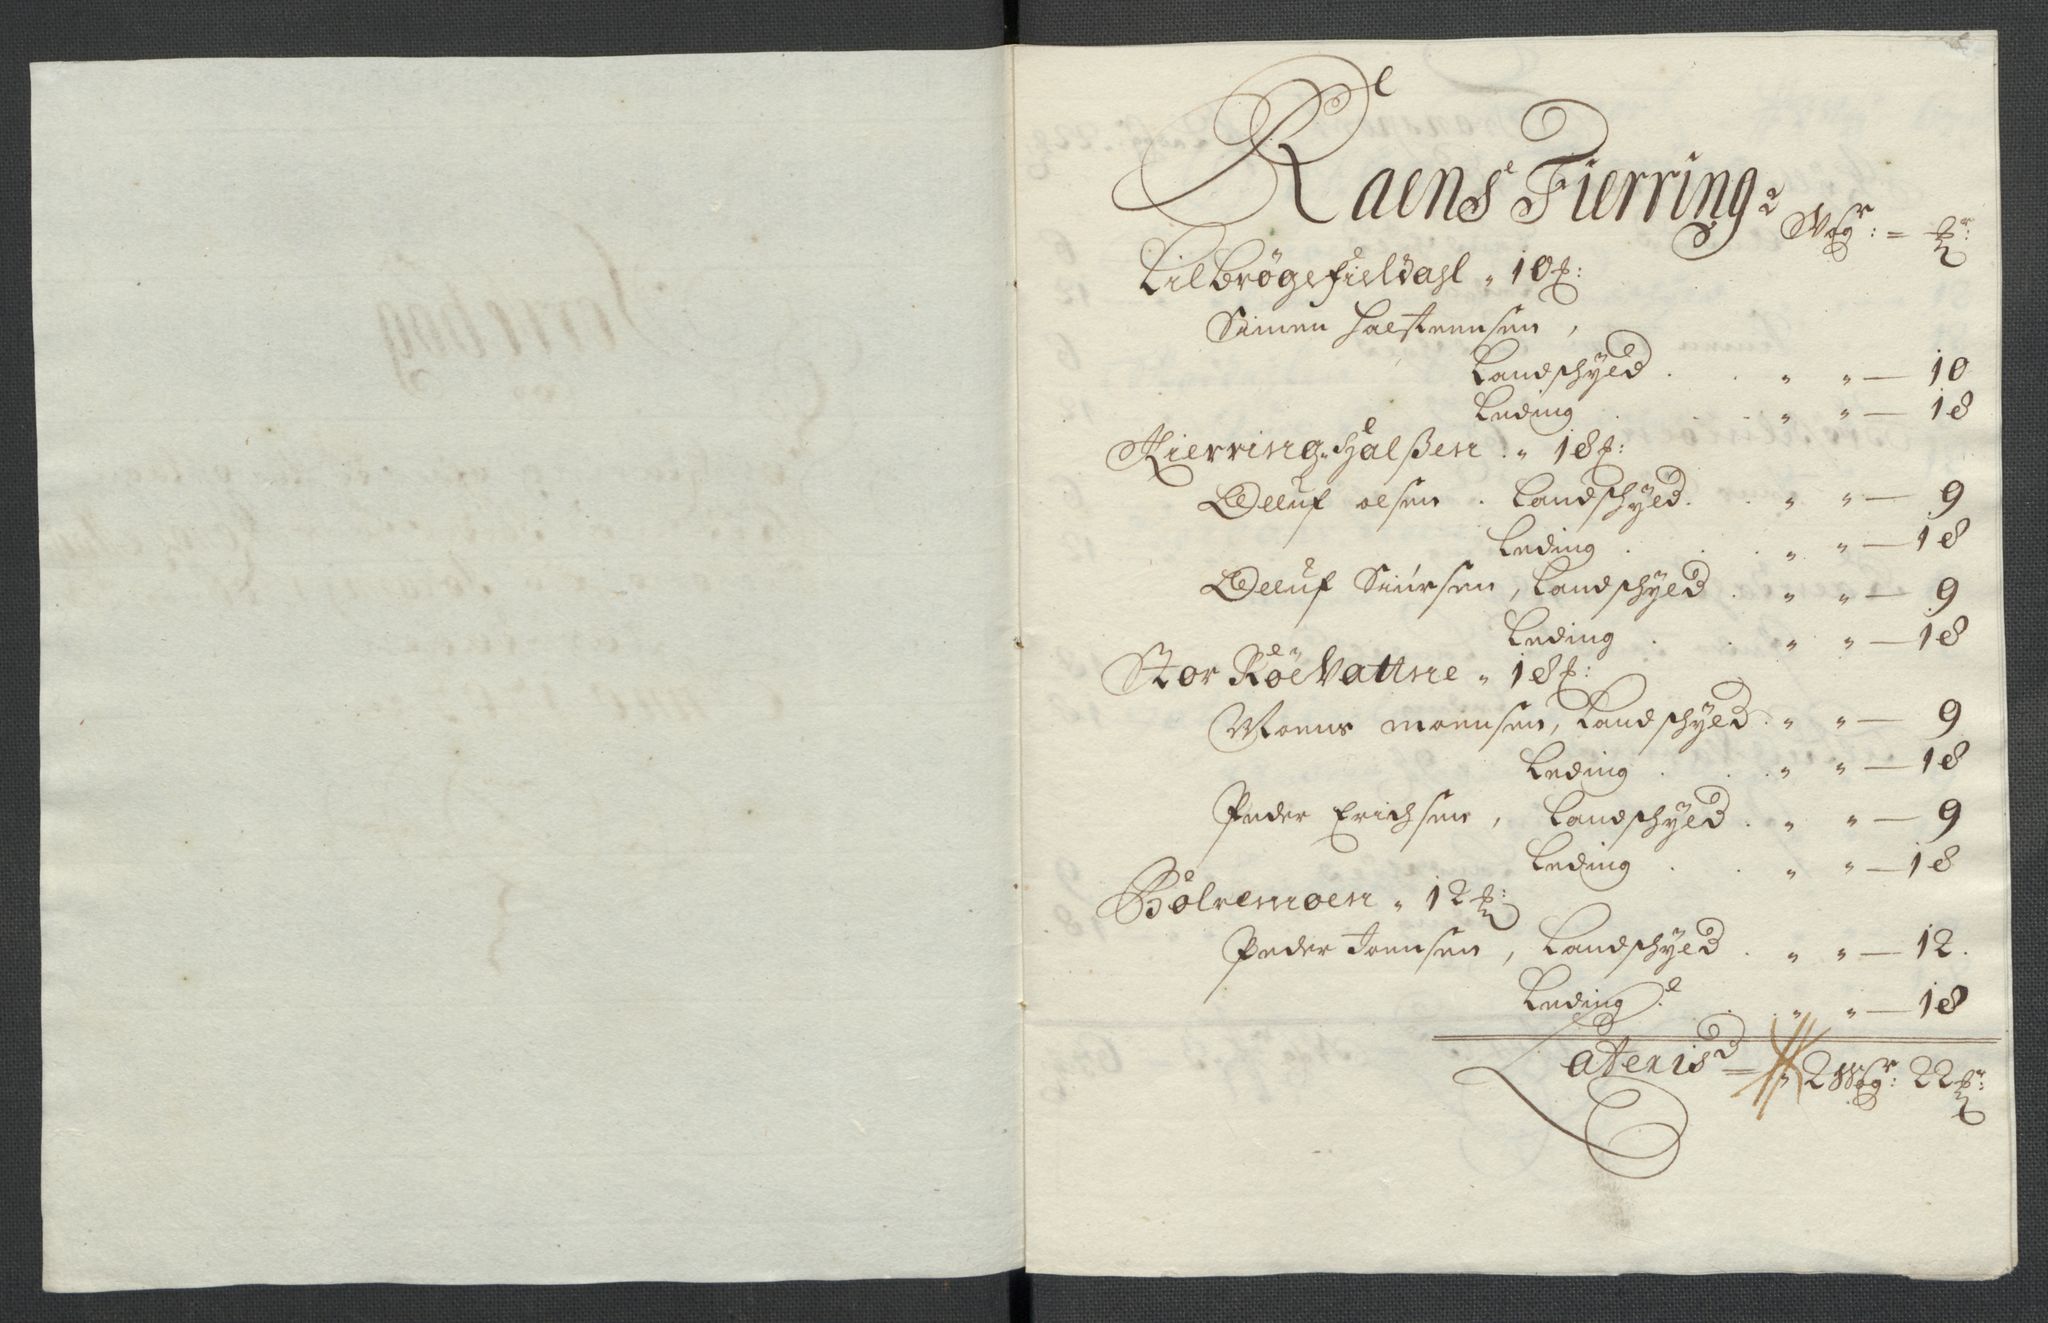 Raens Fierring
Wogr: = ℔r:
Lilbrøgefieldahl „ 10 ℔:
Simen Halsteensen,
Landschyld . . „ „ — 10
Leding . . . „ „ — 18
Kierring Halßen . „ 18 ℔:
Oeluf Olsen . Landschyld . . „ „ — 9
Leding . . . „ „ — 18
Oeluf Siursen, Landschyld . „ „ — 9
Leding . . „ „ — 18
Stor Røevattne „ 18 ℔:
Moens Moensen, Landschyld . „ „ — 9
Leding . . . „ „ — 18
Peder Erichsen, Landschyld . „ „ — 9
Leding . . „ „ — 18
Bølremoen „ 12 ℔:
Peder Joensen, Landschyld . „ „ — 12.
Leding . . „ „ — 18
Lateris = „ 2 Wogr: 22 ℔r: